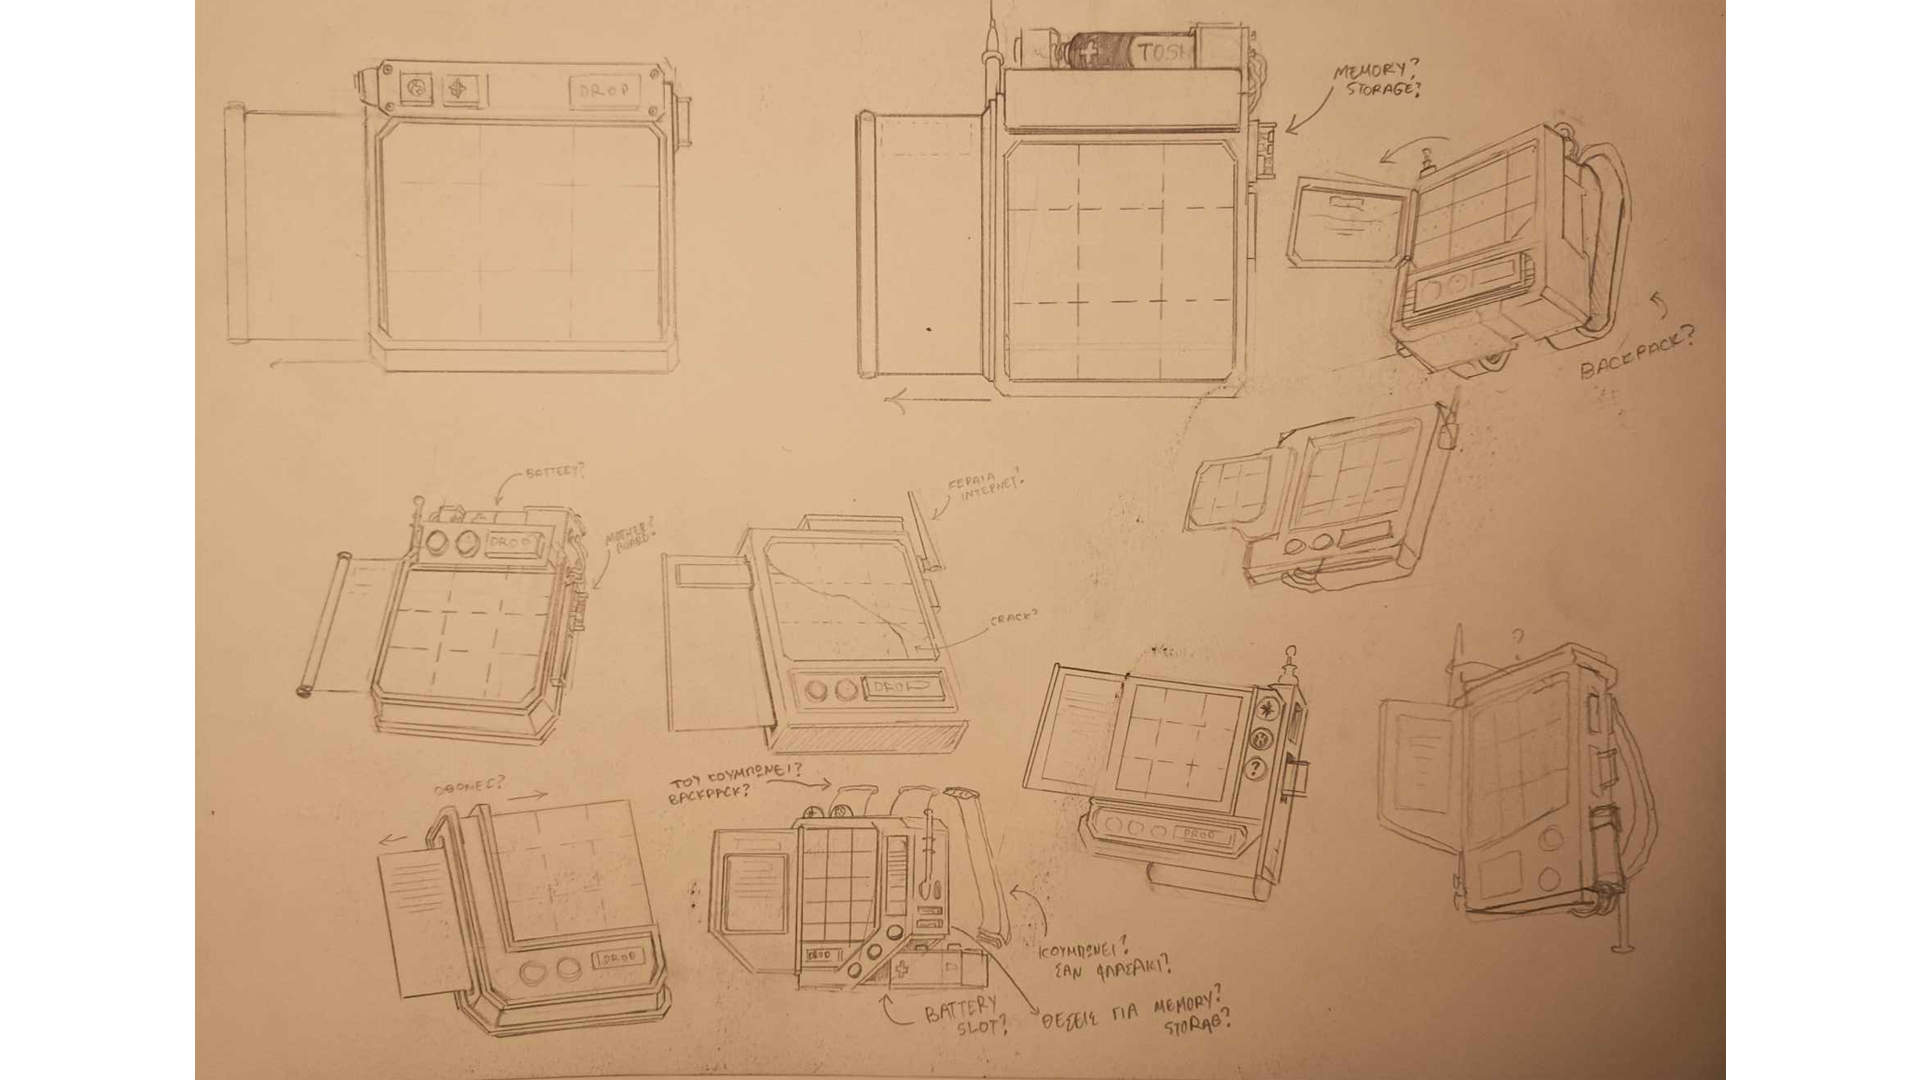 DROP
TOSH
MEMORY?
STORAGE?
BACKPACK?
BATTERY?
DROP
MOTHER?
BOARD?
ΚΕΡΑΙΑ
INTERNET?
CRACK?
DROP
?
?
DROP
ΟΘΟΝΕΣ?
DROP
ΤΟΥ ΚΟΥΜΠΩΝΕΙ?
BACKPACK?
DROP
ΚΟΥΜΠΩΝΕΙ?
ΣΑΝ ΦΛΑΣΑΚΙ?
BATTERY
SLOT?
ΘΕΣΕΙΣ ΓΙΑ MEMORY?
STORAG?